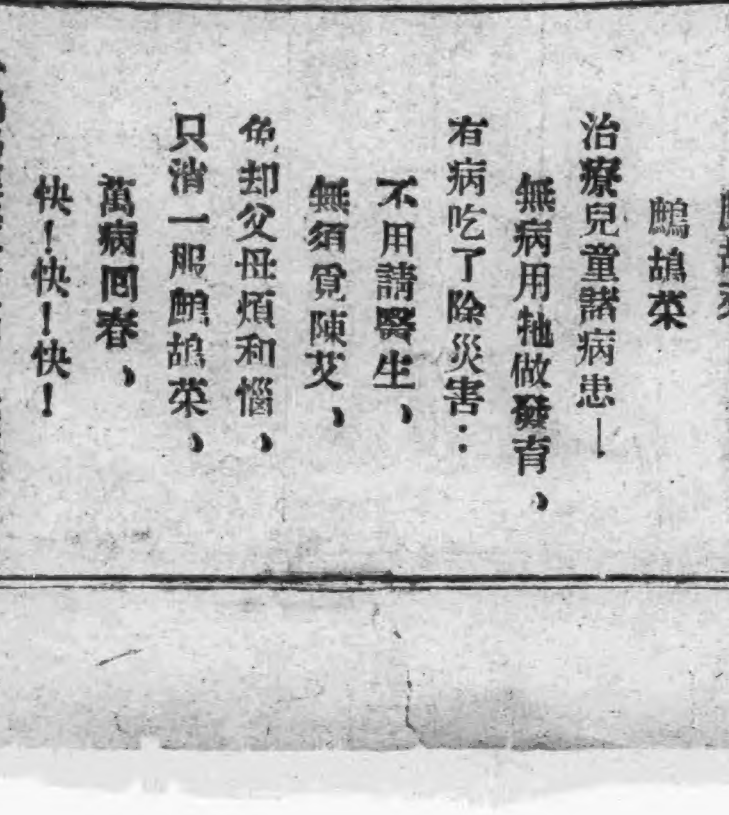 鷓鴣菜
鷓鴣菜
治療兒童諸病患—
無病用牠做發育、
有病吃了除災害：
不用請醫生、
無須覓陳艾、
免却父母煩和惱、
只消一服鷓鴣菜、
萬病回春、
快！快！快！